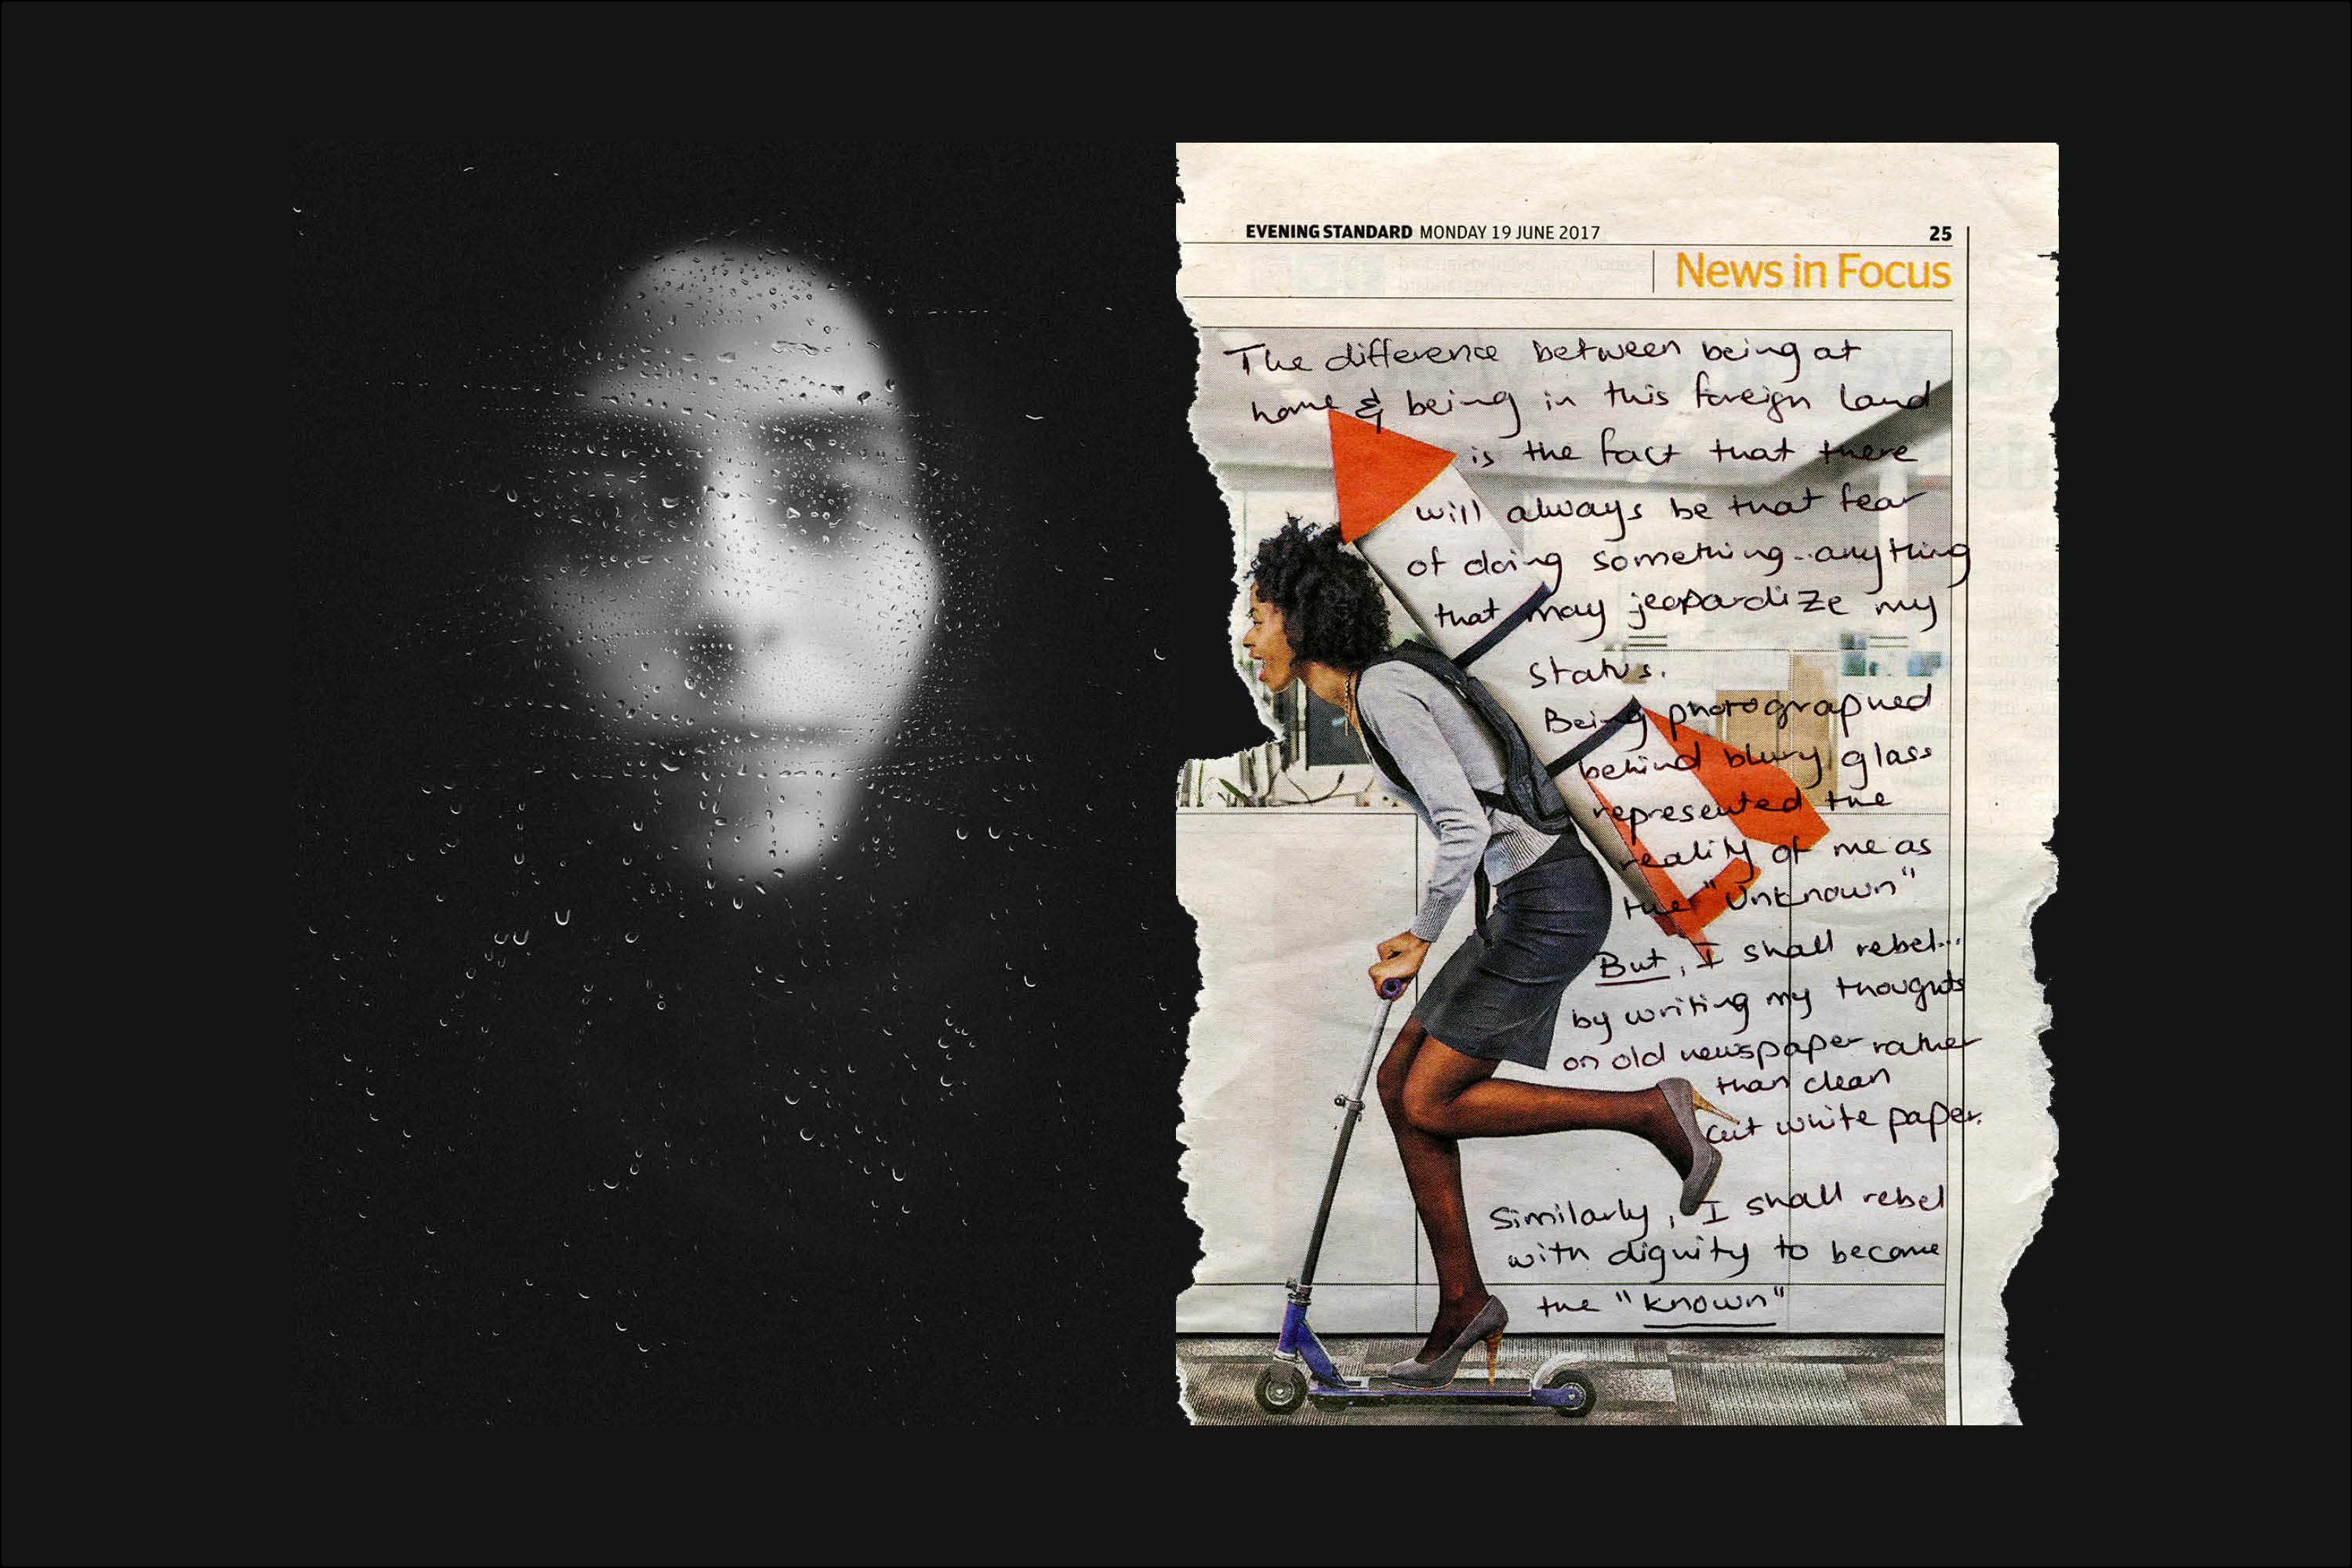 EVENING STANDARD MONDAY 19 JUNE 2017 25
News in Focus
The difference between being at
home & being in this foreign land
is the fact that there
will always be that fear
of doing something...anything
that may jeopardize my
status.
Being photographed
behind blury glass
represented the
reality of me as
the "Unknown"
But, I shall rebel...
by writing my thoughts
on old newspaper rather
than clean
cut white paper.
Similarly, I shall rebel
with dignity to become
the "known"